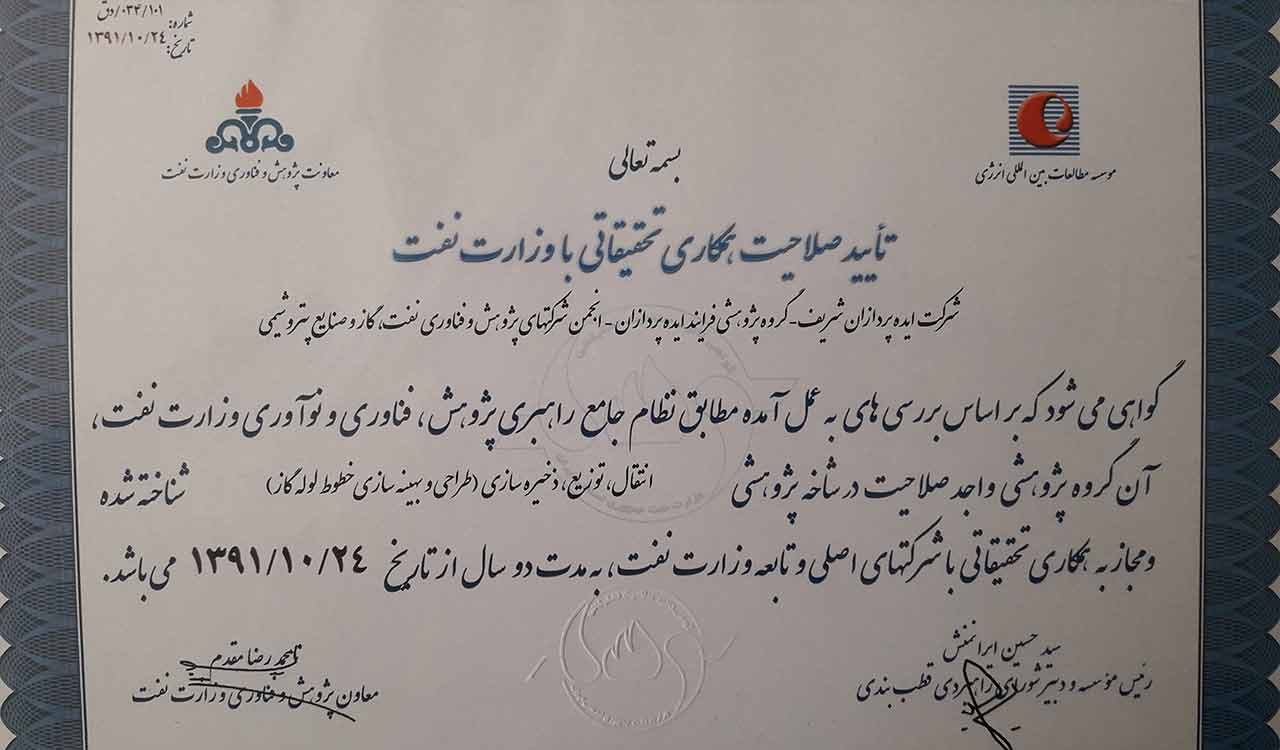 شماره: ۰۳۴/۱۰۱/دق
تاریخ: ۱۳۹۱/۱۰/۲۴
موسسه مطالعات بین المللی انرژی
معاونت پژوهش و فناوری وزارت نفت
بسمه تعالی
تأیید صلاحیت همکاری تحقیقاتی با وزارت نفت
شرکت ایده پردازان شریف - گروه پژوهشی فرایند ایده پردازان - انجمن شرکتهای پژوهش و فناوری نفت، گاز و صنایع پتروشیمی
گواهی می شود که بر اساس بررسی های به عمل آمده مطابق نظام جامع راهبری پژوهش، فناوری و نوآوری وزارت نفت،
آن گروه پژوهشی واجد صلاحیت در شاخه پژوهشی انتقال، توزیع، ذخیره سازی (طراحی و بهینه سازی خطوط لوله گاز) شناخته شده
و مجاز به همکاری تحقیقاتی با شرکتهای اصلی و تابعه وزارت نفت، به مدت دو سال از تاریخ ۱۳۹۱/۱۰/۲۴ می باشد.
سید حسین ایرانمنش
رئیس مؤسسه و دبیر شورای راهبردی قطب بندی
محمد رضا مقدم
معاون پژوهش و فناوری وزارت نفت